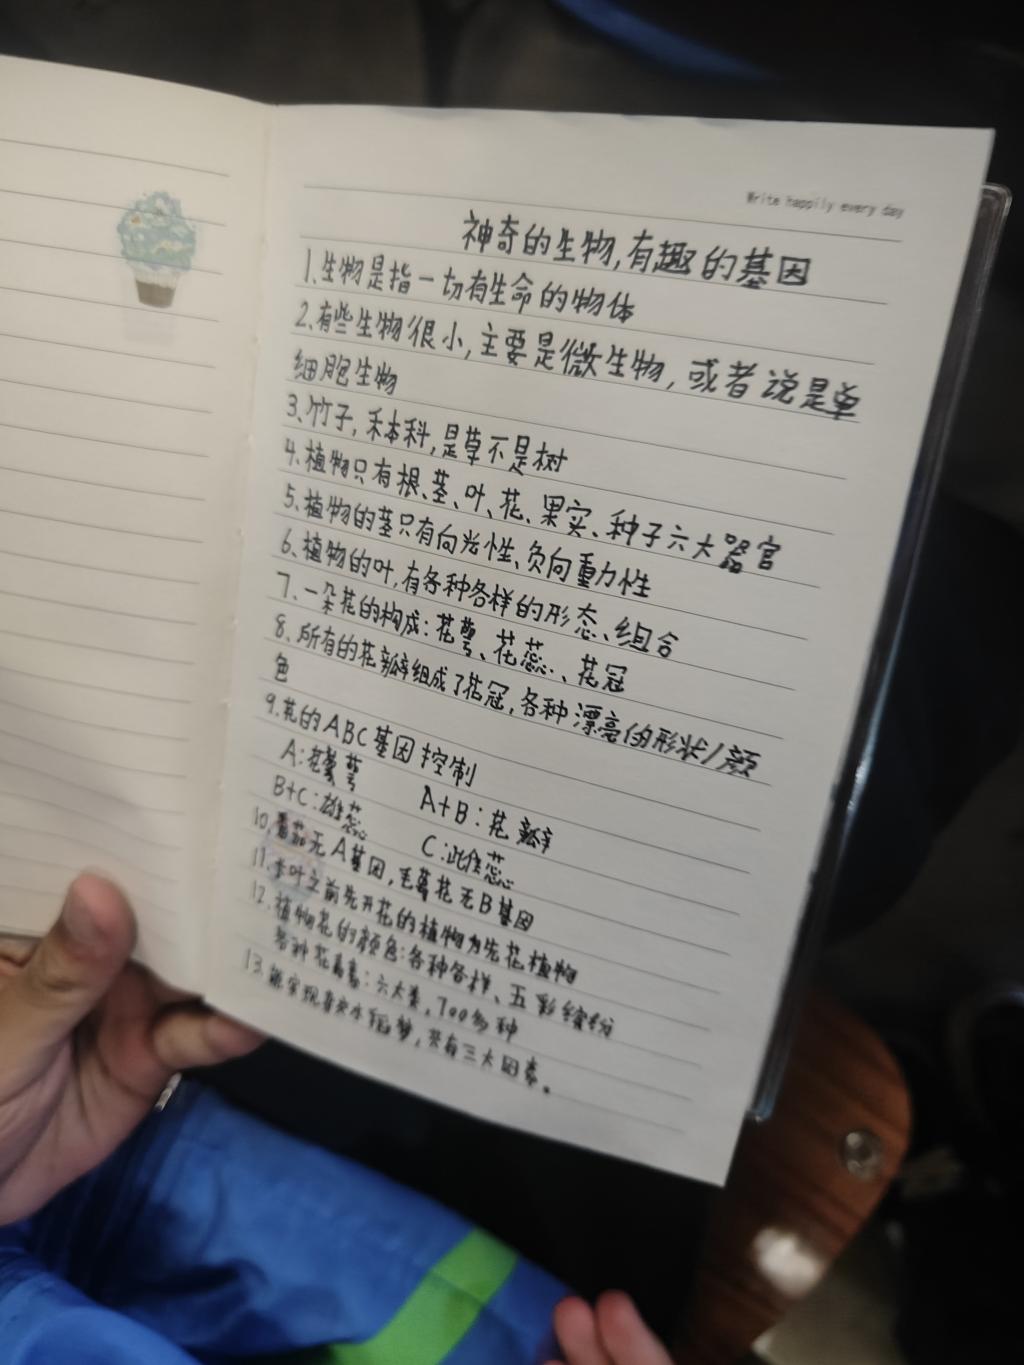 Write happily every day
神奇的生物,有趣的基因
1.生物是指一切有生命的物体
2.有些生物很小,主要是微生物,或者说是单
细胞生物
3.竹子,禾本科,是草不是树
4.植物只有根、茎、叶、花、果实、种子六大器官
5.植物的茎只有向光性、负向重力性
6.植物的叶,有各种各样的形态、组合
7.一朵花的构成:花萼、花蕊、花冠
8.所有的花瓣组成了花冠,各种漂亮的形状/颜
色
9.花的ABC基因控制
A:花萼 A+B:花瓣
B+C:雄蕊 C:雌蕊
10.番茄无A基因,毛茛花无B基因
11.长叶之前先开花的植物为先花植物
12.植物花的颜色:各种各样、五彩缤纷
各种花青素:六大类,700多种
13.能实现海水稻梦,共有三大因素。